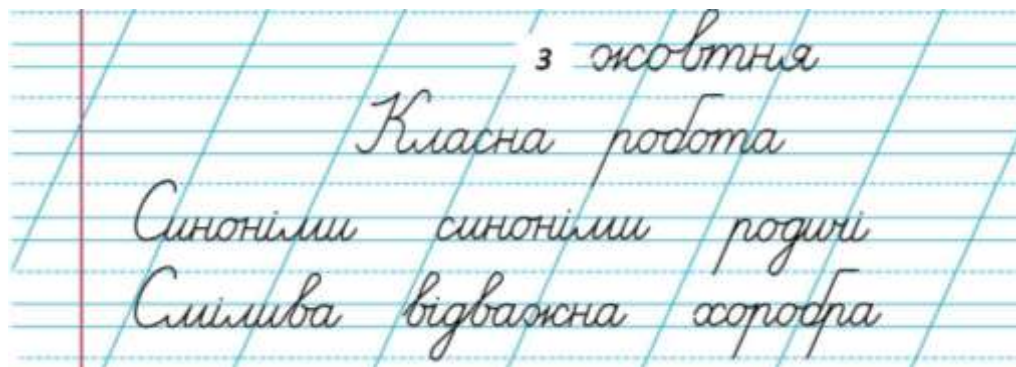 3 жовтня
Класна робота
Синоніми синоніми родичі
Смілива відважна хоробра